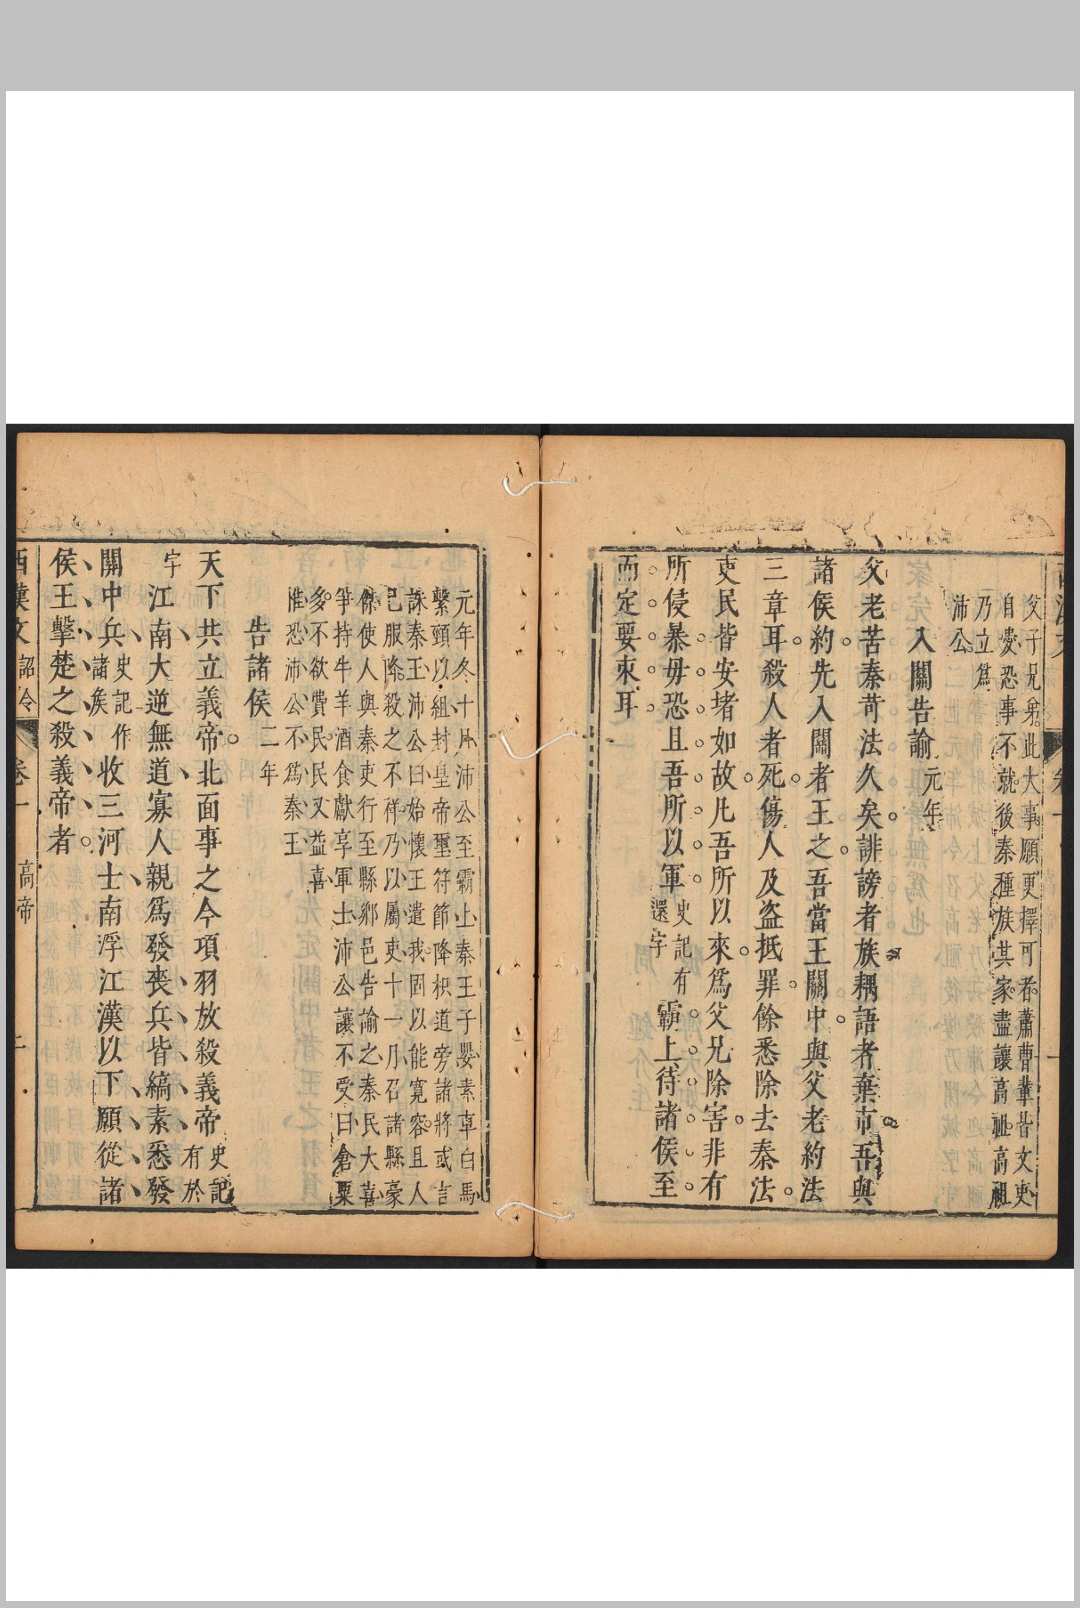 父子兄弟此大事願更擇可者蕭曹輩皆文吏
自愛恐事不就後秦種族其家盡讓高祖高祖
乃立爲
沛公
入關告諭元年
父老苦秦苛法久矣誹謗者族耦語者棄市吾與
諸侯約先入關者王之吾當王關中與父老約法
三章耳殺人者死傷人及盜抵罪餘悉除去秦法
吏民皆安堵如故凡吾所以來爲父兄除害非有
所侵暴毋恐且吾所以軍史記有還字霸上待諸侯至
而定要束耳
元年冬十月沛公至霸上秦王子嬰素車白馬
繫頸以組封皇帝璽符節降枳道旁諸將或言
誅秦王沛公曰始懷王遣我固以能寬容且人
已服降殺之不祥乃以屬吏十一月召諸縣豪
傑使人與秦吏行至縣鄉邑告諭之秦民大喜
爭持牛羊酒食獻享軍士沛公讓不受曰倉粟
多不欲費民民又益喜
惟恐沛公不爲秦王
告諸侯二年
天下共立義帝北面事之今項羽放殺義帝史記有於
字江南大逆無道寡人親爲發喪兵皆縞素悉發
關中兵史記作諸侯收三河士南浮江漢以下願從諸
侯王擊楚之殺義帝者
西漢文 詔令 卷一 高帝 二